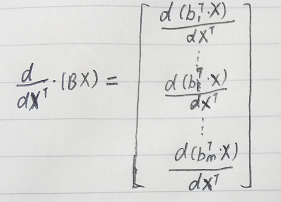 d/dX^T · (BX) = [ d(b₁^T·X)/dX^T
⋮
d(bₖ^T·X)/dX^T
⋮
d(bₘ^T·X)/dX^T ]